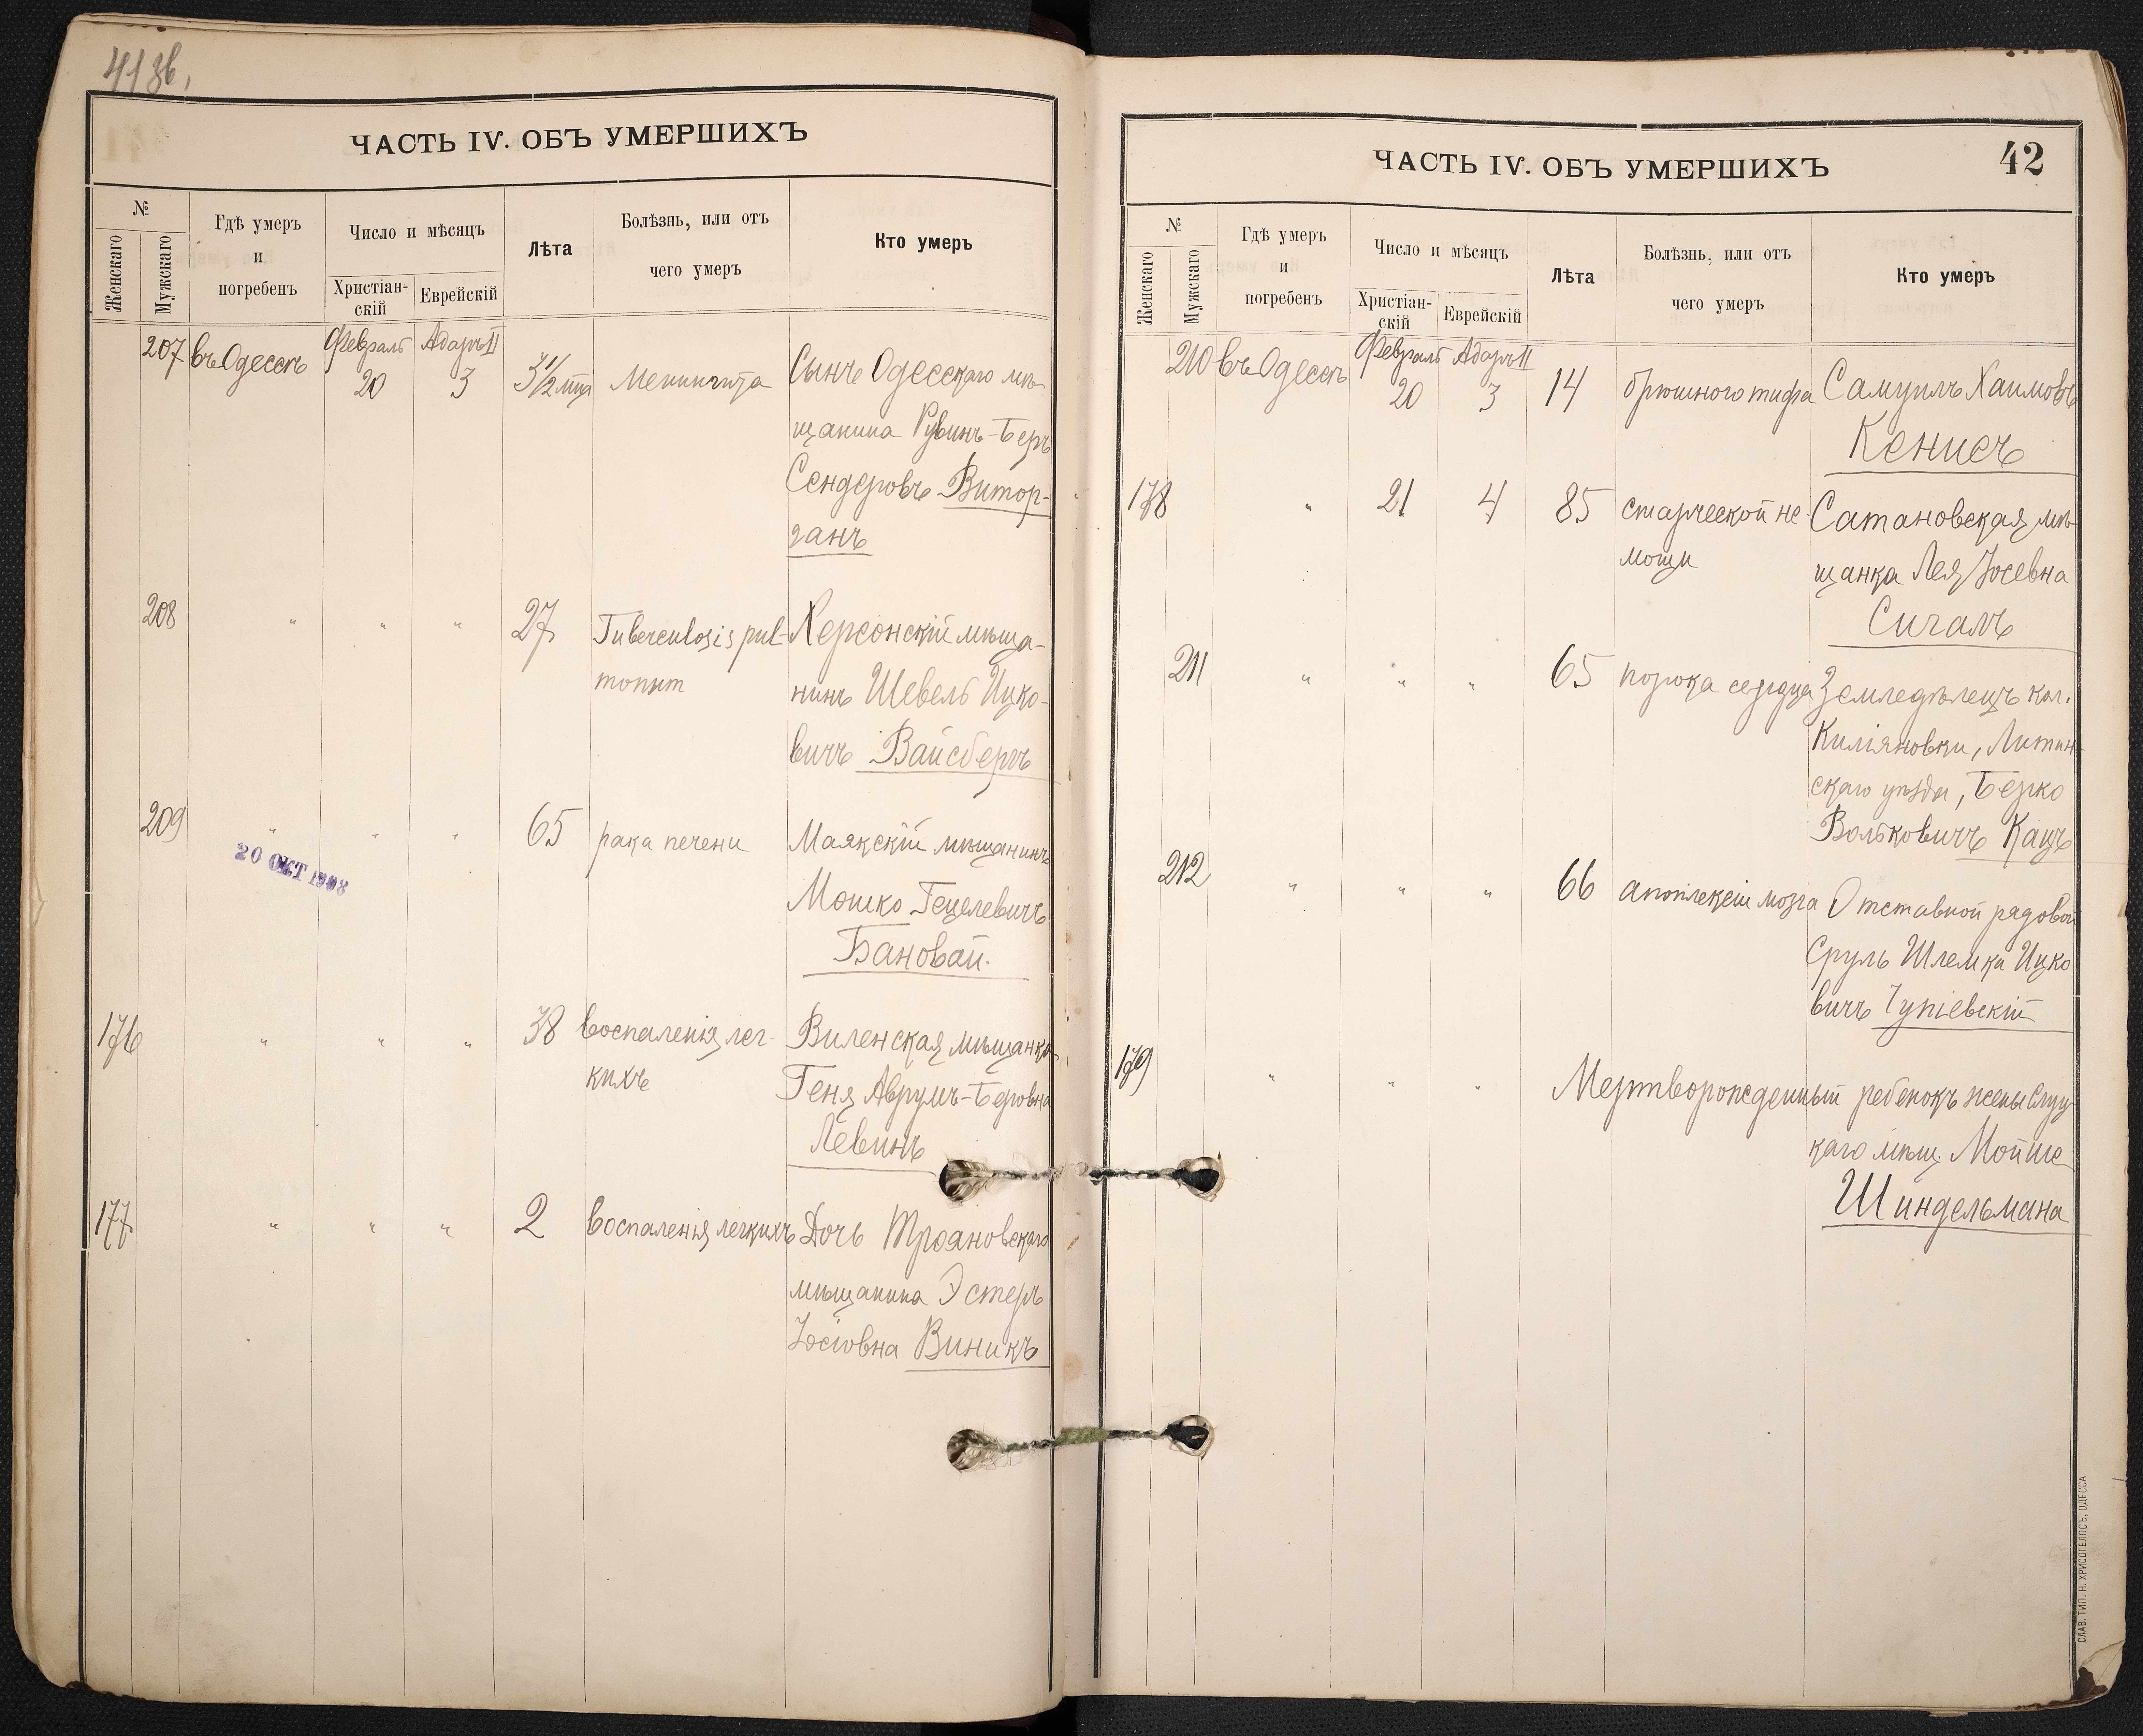 41 зв.
ЧАСТЬ IV. ОБЪ УМЕРШИХЪ
№
Женскаго
Мужскаго
Гдѣ умеръ
и
погребенъ
Число и мѣсяцъ
Христіан-
скій
Еврейскій
Лѣта
Болѣзнь, или отъ
чего умеръ
Кто умеръ
207 въ Одессѣ Февраль Адаръ II
20 3 3½ мца Менингита Сынъ Одесскаго мѣ-
щанина Рувинъ-Беръ
Сендеровъ Витор-
ганъ
208 " " " 27 Tuberculosis pul- Херсонскій мѣща-
monum нинъ Шевель Ицко-
вичъ Вайсбергъ
209 " " " 65 рака печени Маякскій мѣщанинъ
20 ОКТ 1908
Мошко Гецелевичъ
Бановай.
176 " " " 38 воспаленія лег- Виленская мѣщанка
кихъ Геня Аврумъ-Беровна
Левинъ
177 " " " 2 воспаленія легкихъ Дочь Трояновскаго
мѣщанина Эстеръ
Іосіовна Виникъ
ЧАСТЬ IV. ОБЪ УМЕРШИХЪ 42
№
Женскаго
Мужскаго
Гдѣ умеръ
и
погребенъ
Число и мѣсяцъ
Христіан-
скій
Еврейскій
Лѣта
Болѣзнь, или отъ
чего умеръ
Кто умеръ
210 въ Одессѣ Февраль Адаръ II
20 3 14 брюшного тифа Самуилъ Хаимовъ
Кенисъ
178 " 21 4 85 старческой не- Сатановская мѣ-
мощи щанка Лея Іосевна
Сигалъ
211 " " " 65 порока сердца Земледѣлецъ кол.
Киліяновки, Литин-
скаго уѣзда, Берко
Вольковичъ Кацъ
212 " " " 66 апоплексіи мозга Отставной рядовой
Сруль Шлемка Ицко
вичъ Чуніевскій
179 " " " Мертворожденный ребенокъ жены Слуц
каго мѣщ. Мойше
Шиндельмана
СЛАВ. ТИП. Н. ХРИСОГЕЛОСЪ, ОДЕССА